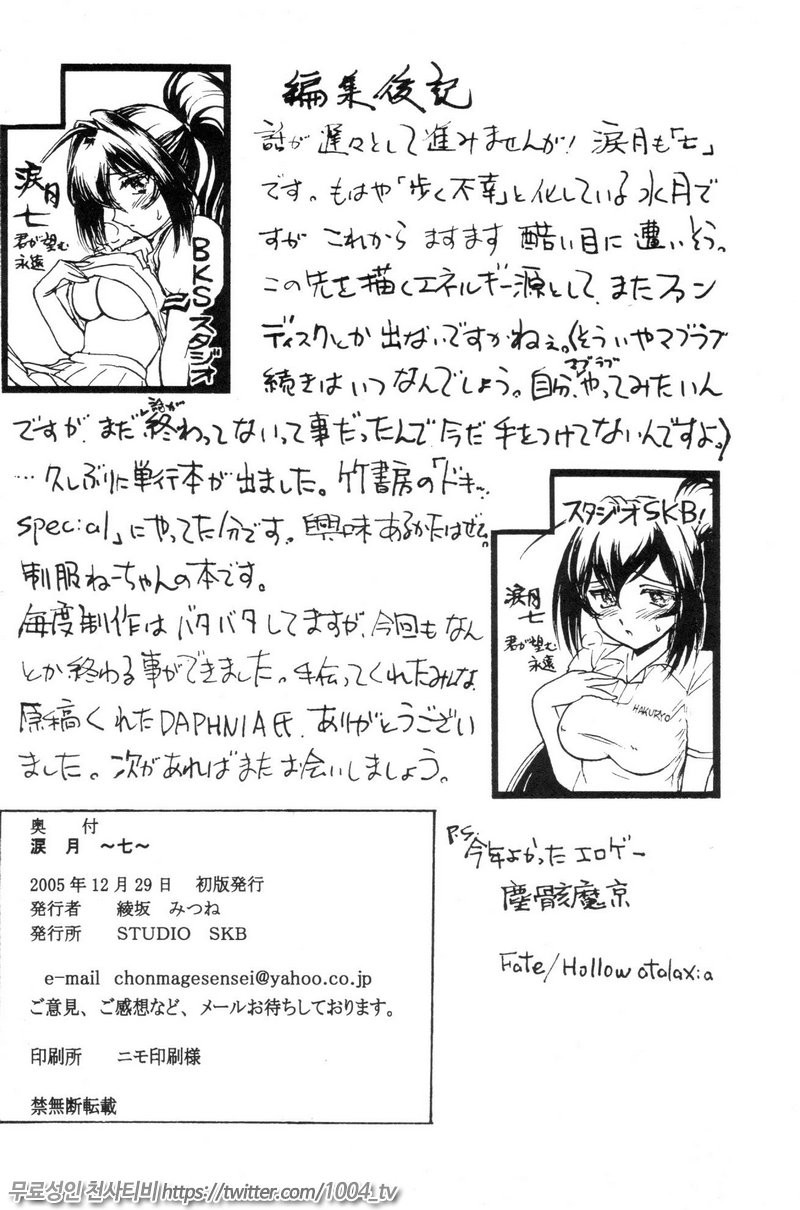 編集後記
話が遅々として進みませんが！涙月も「七」
です。もはや「歩く不幸」と化している水月で
すが これから ますます 酷い目に 遭いそう。
この先を描くエネルギー源として、またファン
ディスクとか出ないですかねぇ。(そういやマブラブ
続きはいつなんでしょう。自分、マブラブやってみたいん
ですが、まだ話が終わってないって事だったんで今だ手をつけてないんですよ。)
…久しぶりに単行本が出ました。竹書房の「ドキッ
special」にやってた分です。興味あるかたはぜひ。
制服ねーちゃんの本です。
毎度制作はバタバタしてますが、今回もなん
とか終わる事ができました。手伝ってくれたみんな、
原稿くれたDAPHNIA氏、ありがとうござい
ました。次があればまたお会いしましょう。
涙月
七
君が望む
永遠
BKSスタジオ
スタジオSKB!
涙月
七
君が望む
永遠
HAKURYO
P.S.
今年よかったエロゲー
塵骸魔京
Fate/Hollow atalaxia
奥 付
涙 月 ～七～
2005年12月29日 初版発行
発行者 綾坂 みつね
発行所 STUDIO SKB
e-mail chonmagesensei@yahoo.co.jp
ご意見、ご感想など、メールお待ちしております。
印刷所 ニモ印刷様
禁無断転載
무료성인 천사티비 https://twitter.com/1004_tv